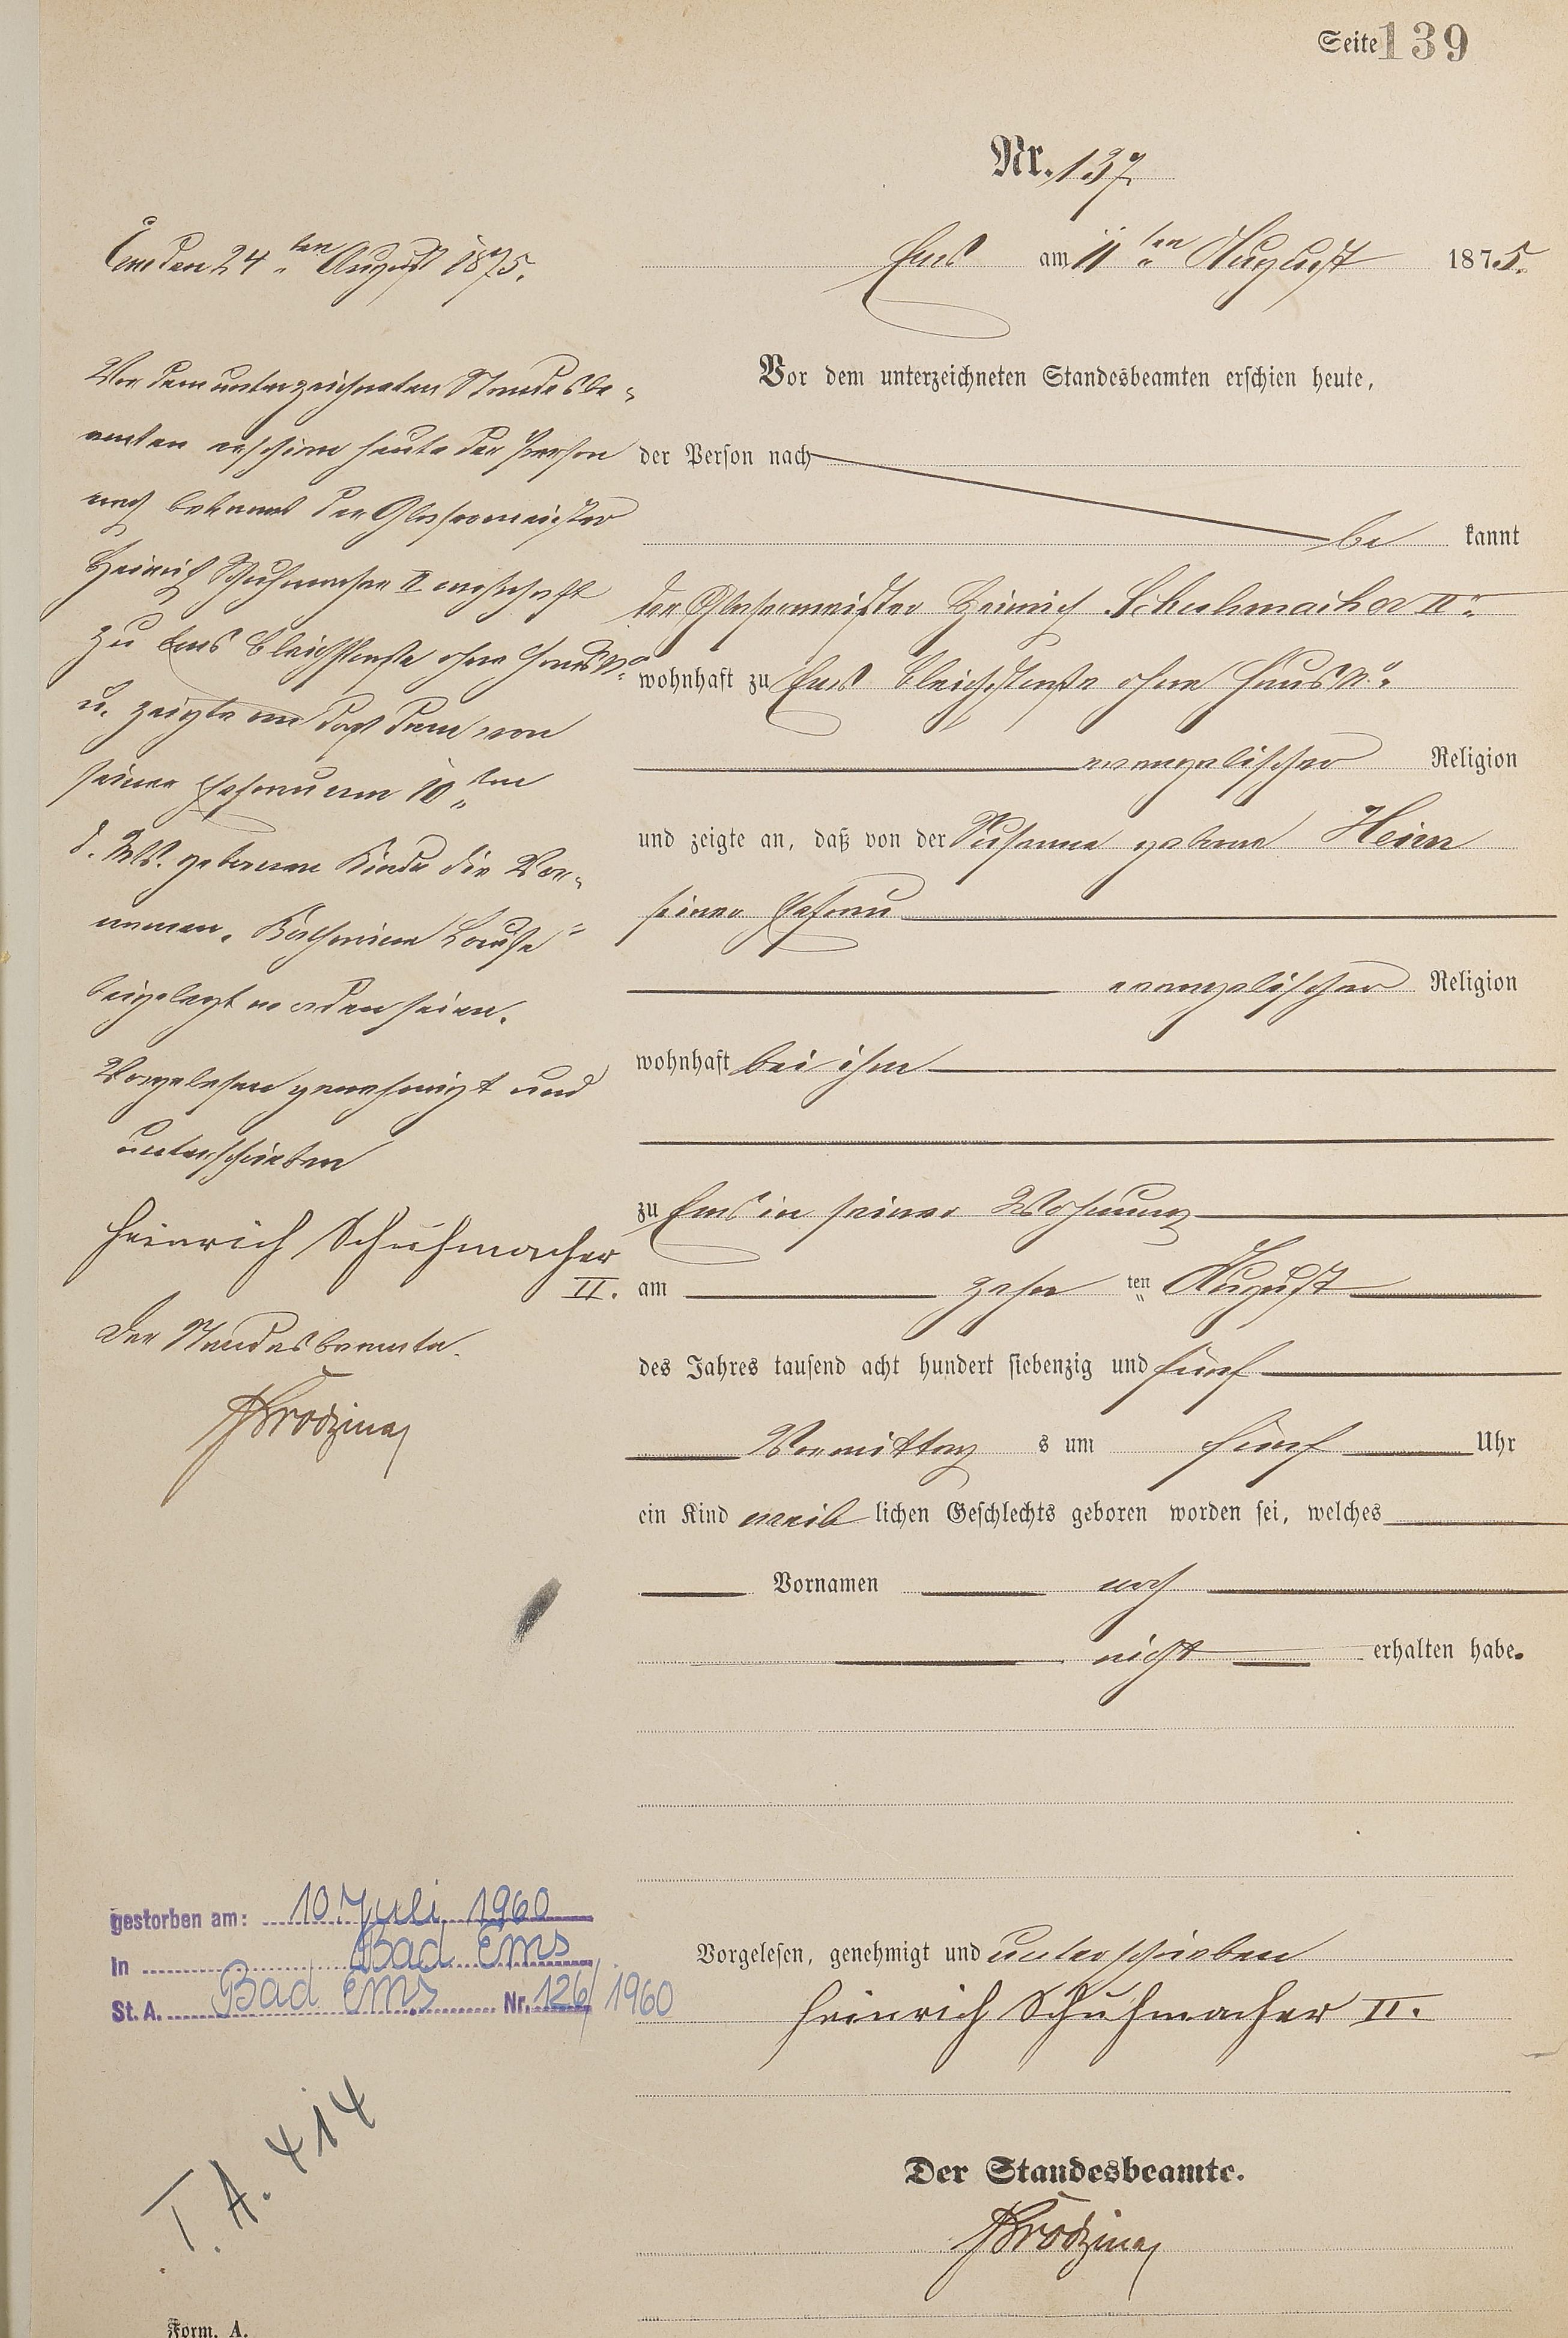 Seite 139
Nr. 137
Ems am 11ten August 1875.
Vor dem unterzeichneten Standesbeamten erschien heute,
der Person nach
be kannt
der Glasermeister Heinrich Schuhmacher II.
wohnhaft zu Ems Bleichstraße ohne Haus No.
evangelischer Religion
und zeigte an, daß von der Susanna geborne Heim
seiner Ehefrau
evangelischer Religion
wohnhaft bei ihm
zu Ems in seiner Wohnung
am zehn ten August
des Jahres tausend acht hundert siebenzig und fünf
Vormittag s um fünf Uhr
ein Kind weib lichen Geschlechts geboren worden sei, welches
Vornamen noch
nicht erhalten habe.
Vorgelesen, genehmigt und unterschrieben
Heinrich Schuhmacher II.
Der Standesbeamte.
Ems den 24ten August 1875.
Vor dem unterzeichneten Standesbe-
amten erschien heute der Person
nach bekannt der Glasermeister
Heinrich Schuhmacher II wohnhaft
zu Ems Bleichstraße ohne Haus No.
u. zeigte an daß dem von
seiner Ehefrau am 10ten
d. Mts. geborenen Kinde die Vor-
namen „Katharina Louise“
beigelegt worden seien.
Vorgelesen genehmigt und
unterschrieben
Heinrich Schuhmacher
II.
Der Standesbeamte.
gestorben am: 10. Juli 1960
in Bad Ems
St. A. Bad Ems Nr. 126/1960
T. A. 414
Form. A.